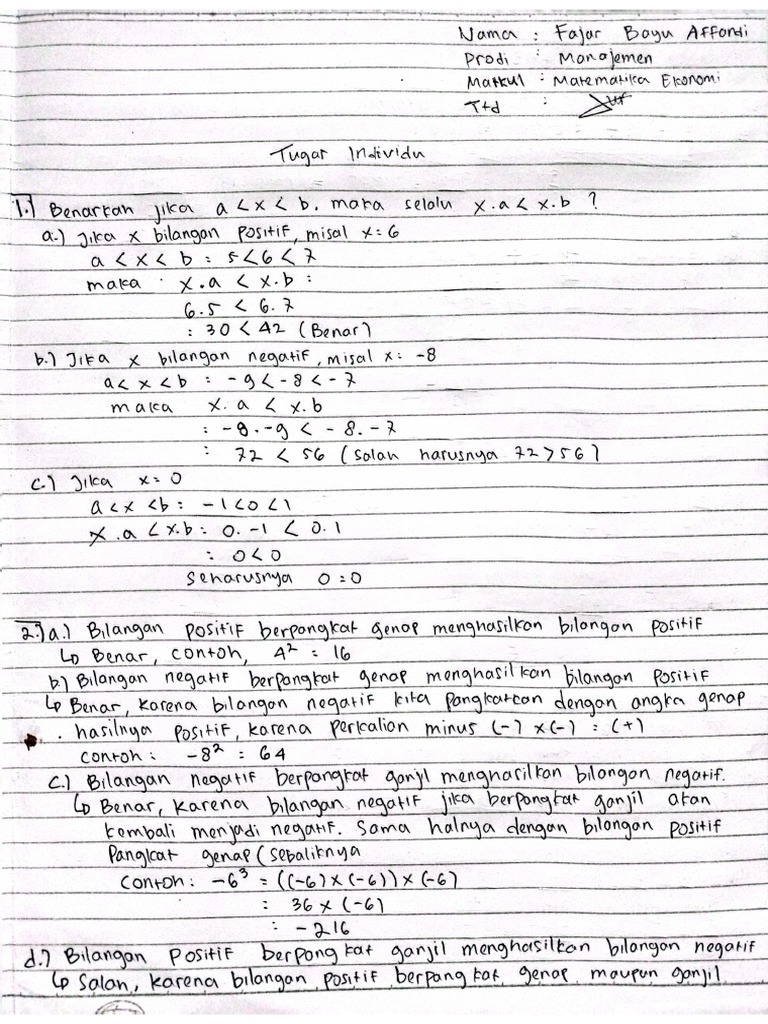 Nama : Fajar Bayu Affandi
Prodi : Manajemen
Matkul : Matematika Ekonomi
Ttd :
Tugas Individu
1.) Benarkah jika a < x < b. maka selalu x.a < x.b ?
a.) Jika x bilangan positif, misal x = 6
a < x < b : 5 < 6 < 7
maka x.a < x.b :
6.5 < 6.7
: 30 < 42 (Benar)
b.) Jika x bilangan negatif, misal x = -8
a < x < b : -9 < -8 < -7
maka x.a < x.b
: -8.-9 < -8.-7
: 72 < 56 (salah harusnya 72 > 56)
c.) Jika x = 0
a < x < b : -1 < 0 < 1
x.a < x.b : 0.-1 < 0.1
: 0 < 0
seharusnya 0 = 0
2.) a.) Bilangan positif berpangkat genap menghasilkan bilangan positif
↳ Benar, contoh, 4² = 16
b) Bilangan negatif berpangkat genap menghasilkan bilangan positif
↳ Benar, karena bilangan negatif kita pangkatkan dengan angka genap
hasilnya positif, karena perkalian minus (-) x (-) = (+)
contoh : -8² = 64
c.) Bilangan negatif berpangkat ganjil menghasilkan bilangan negatif.
↳ Benar, karena bilangan negatif jika berpangkat ganjil akan
kembali menjadi negatif. Sama halnya dengan bilangan positif
Pangkat genap (sebaliknya
contoh : -6³ = ((-6) x (-6)) x (-6)
: 36 x (-6)
: -216
d.) Bilangan Positif berpangkat ganjil menghasilkan bilangan negatif
↳ Salah, karena bilangan positif berpangkat genap maupun ganjil